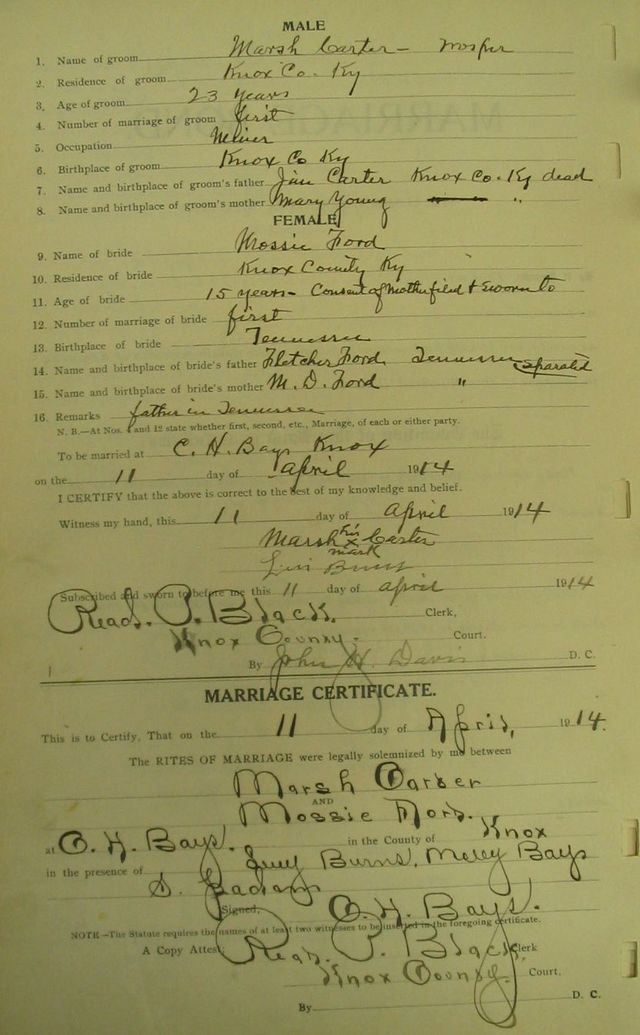 MALE
1. Name of groom Marsh Carter -
2. Residence of groom Knox Co. Ky
3. Age of groom 23 years
4. Number of marriage of groom first
5. Occupation Miner
6. Birthplace of groom Knox Co Ky
7. Name and birthplace of groom's father Jim Carter Knox Co. Ky dead
8. Name and birthplace of groom's mother Mary Young "
FEMALE
9. Name of bride Mossie Ford
10. Residence of bride Knox County Ky
11. Age of bride 15 years - Consent of Mother filed & sworn to
12. Number of marriage of bride first
13. Birthplace of bride Tennessee
14. Name and birthplace of bride's father Fletcher Ford Tennessee
15. Name and birthplace of bride's mother M. D. Ford "
16. Remarks father in Tennessee
N. B.—At Nos. 4 and 12 state whether first, second, etc., Marriage, of each or either party.
To be married at C. H. Bays Knox
on the 11 day of April 1914
I CERTIFY that the above is correct to the best of my knowledge and belief.
Witness my hand, this 11 day of April 1914
Marsh his x mark Carter
Subscribed and sworn to before me this 11 day of April 1914
Read. P. Black. Clerk,
Knox County. Court.
By John H. Davis D. C.
MARRIAGE CERTIFICATE.
This is to Certify, That on the 11 day of April, 1914.
The RITES OF MARRIAGE were legally solemnized by me between
Marsh Carter
AND
Mossie Ford.
at C. H. Bays. in the County of Knox
in the presence of Burns, Bays
Signed, C. H. Bays.
NOTE—The Statute requires the names of at least two witnesses to be inserted in the foregoing certificate.
A Copy Attest Read. P. Black Clerk
Knox County. Court.
By D. C.